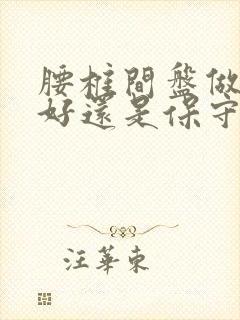 腰椎間盤做
好還是保守
汪華東